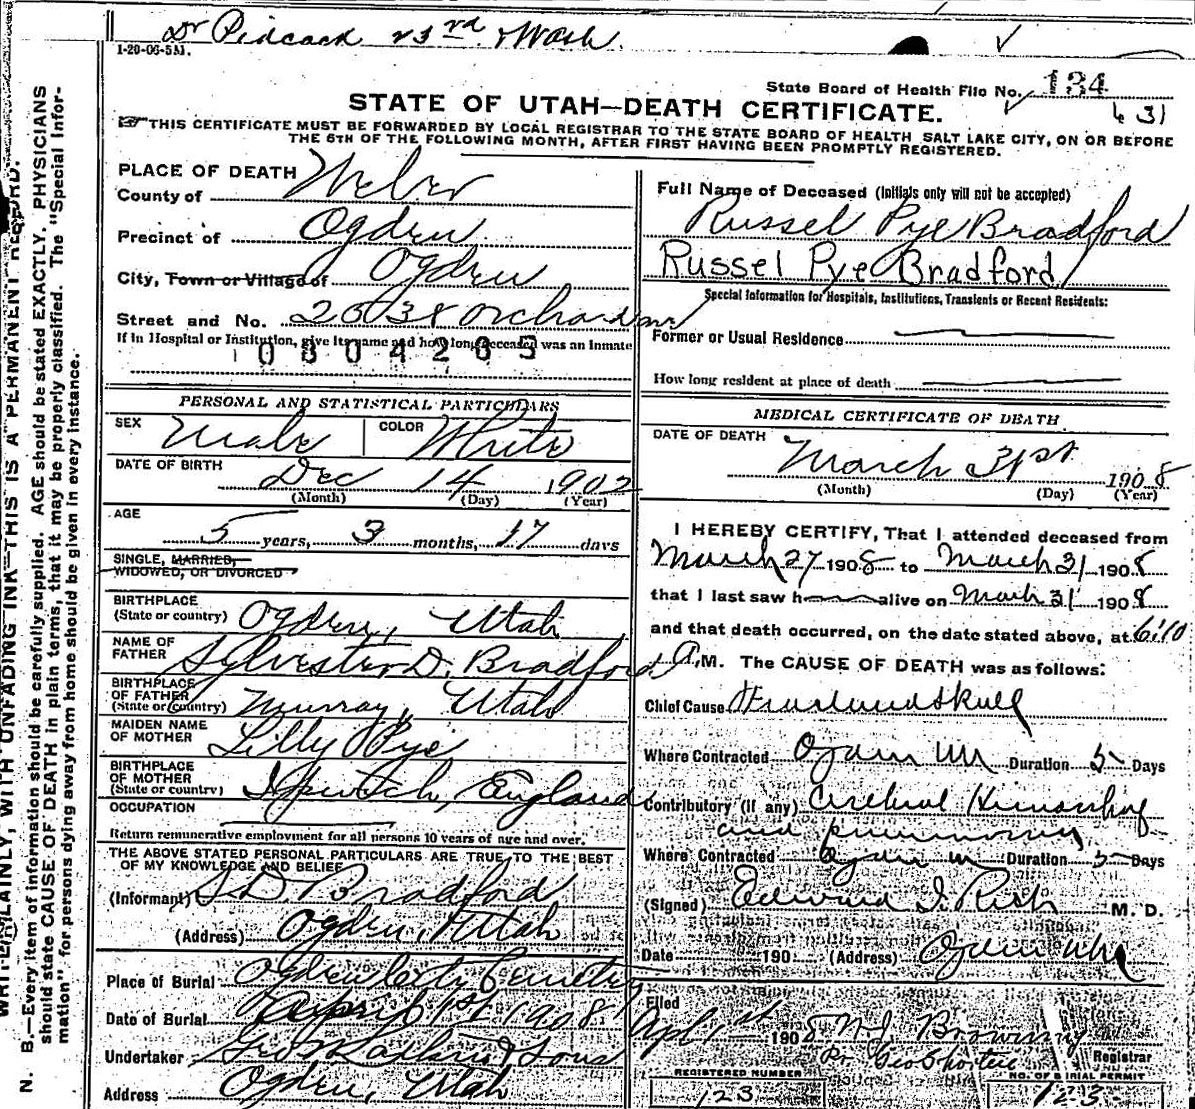 Dr Pidcock 23rd & Wash.
1-20-06-5M.
State Board of Health File No. 134
631
STATE OF UTAH—DEATH CERTIFICATE.
THIS CERTIFICATE MUST BE FORWARDED BY LOCAL REGISTRAR TO THE STATE BOARD OF HEALTH SALT LAKE CITY, ON OR BEFORE
THE 6TH OF THE FOLLOWING MONTH, AFTER FIRST HAVING BEEN PROMPTLY REGISTERED.
PLACE OF DEATH
County of Weber
Precinct of Ogden
City, Town or Village of Ogden
Street and No. 2638 Orchard av
If in Hospital or Institution, give its name and how long deceased was an Inmate
0304265
PERSONAL AND STATISTICAL PARTICULARS
SEX Male COLOR White
DATE OF BIRTH Dec 14 1902
(Month) (Day) (Year)
AGE
5 years, 3 months, 17 days
SINGLE, MARRIED,
WIDOWED, OR DIVORCED
BIRTHPLACE
(State or country) Ogden, Utah
NAME OF
FATHER Sylvester D. Bradford
BIRTHPLACE
OF FATHER
(State or country) Murray, Utah
MAIDEN NAME
OF MOTHER Lilly Pye
BIRTHPLACE
OF MOTHER
(State or country) Ipswitch, England
OCCUPATION
Return remunerative employment for all persons 10 years of age and over.
THE ABOVE STATED PERSONAL PARTICULARS ARE TRUE TO THE BEST
OF MY KNOWLEDGE AND BELIEF
(Informant) S D. Bradford
(Address) Ogden, Utah
Place of Burial Ogden City Cemetry
Date of Burial April 1st 1908
Undertaker & Sons
Address Ogden, Utah
Full Name of Deceased (Initials only will not be accepted)
Russel Pye Bradford
Russel Pye Bradford
Special Information for Hospitals, Institutions, Transients or Recent Residents:
Former or Usual Residence
How long resident at place of death
MEDICAL CERTIFICATE OF DEATH
DATE OF DEATH
March 31st 1908
(Month) (Day) (Year)
I HEREBY CERTIFY, That I attended deceased from
March 27 1908 to March 31 1908
that I last saw h alive on March 31 1908
and that death occurred, on the date stated above, at 6:10
A.M. The CAUSE OF DEATH was as follows:
Chief Cause Skull
Where Contracted Ogden Duration 5 Days
Contributory (if any) Cerebral Hemorrhag
and pneumonia
Where Contracted Ogden Duration 5 Days
(Signed) Edward I. Rich M. D.
Date 190 (Address) Ogden Utah
Filed
Apl 1st 1908 Browning
Registrar
REGISTERED NUMBER
123
NO. OF BURIAL PERMIT
123
WRITE PLAINLY, WITH UNFADING INK—THIS IS A PERMANENT RECORD.
N. B.—Every item of information should be carefully supplied. AGE should be stated EXACTLY. PHYSICIANS
should state CAUSE OF DEATH in plain terms, that it may be properly classified. The "Special Infor-
mation" for persons dying away from home should be given in every instance.